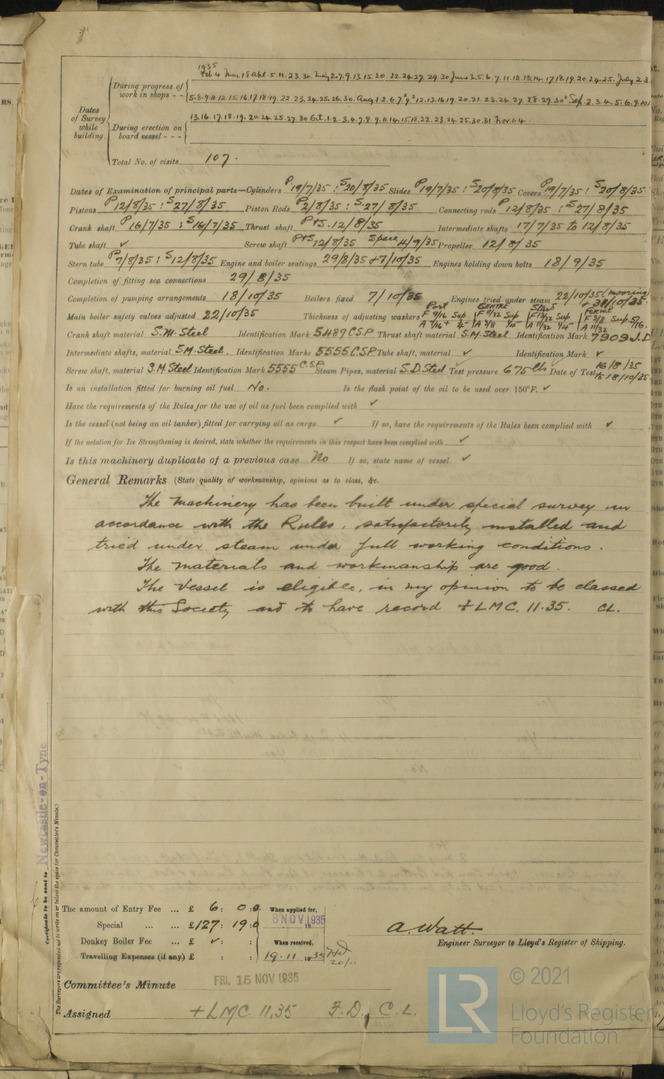 1935
Dates of Survey while building
During progress of work in shops - -
During erection on board vessel - - -
Total No. of visits 107.
Dates of Examination of principal parts—Cylinders P 19/7/35 : S 20/8/35 Slides P 19/7/35 : S 20/8/35 Covers P 19/7/35 : S 20/8/35
Pistons P 12/8/35 : S 27/8/35 Piston Rods P 2/8/35 : S 27/8/35 Connecting rods P 12/8/35 : S 27/8/35
Crank shaft P 16/7/35 : S 16/7/35 Thrust shaft P+S. 12/8/35 Intermediate shafts 17/7/35 to 12/8/35
Tube shaft ✓ Screw shaft P+S 12/8/35 Spare 4/9/35 Propeller 12/8/35
Stern tube P 7/8/35 : S 12/8/35 Engine and boiler seatings 29/8/35 + 7/10/35 Engines holding down bolts 18/9/35
Completion of fitting sea connections 29/8/35
Completion of pumping arrangements 18/10/35 Boilers fixed 7/10/35 Engines tried under steam 22/10/35 (mooring) + 31/10/35.
Main boiler safety valves adjusted 22/10/35 Thickness of adjusting washers
Crank shaft material S.M. Steel Identification Mark 5489 CSP Thrust shaft material S.M. Steel Identification Mark 7909 J.D
Intermediate shafts, material S.M. Steel. Identification Marks 5555 CSP Tube shaft, material ✓ Identification Mark ✓
Screw shaft, material S.M Steel Identification Mark 5555 CSP Steam Pipes, material S.D. Steel Test pressure 675 lbs Date of Test 16/8/35 to 18/10/35
Is an installation fitted for burning oil fuel No. Is the flash point of the oil to be used over 150°F. ✓
Have the requirements of the Rules for the use of oil as fuel been complied with ✓
Is the vessel (not being an oil tanker) fitted for carrying oil as cargo ✓ If so, have the requirements of the Rules been complied with ✓
If the notation for Ice Strengthening is desired, state whether the requirements in this respect have been complied with ✓
Is this machinery duplicate of a previous case No If so, state name of vessel ✓
General Remarks (State quality of workmanship, opinions as to class, &c.
The machinery has been built under special survey in
accordance with the Rules, satisfactorily installed and
tried under steam under full working conditions.
The materials and workmanship are good.
The Vessel is eligible, in my opinion to be classed
with this Society and to have record + LMC. 11.35. CL.
Newcastle-on-Tyne
Certificate to be sent to
The amount of Entry Fee ... £ 6 : 0 : 0 When applied for,
Special ... ... £ 127 : 19 : 0 8 NOV 1935
Donkey Boiler Fee ... £ ✓ : : When received,
Travelling Expenses (if any) £ : : 19.11 1935
A. Watt.
Engineer Surveyor to Lloyd's Register of Shipping.
Committee's Minute FRI. 15 NOV 1935
Assigned + LMC 11.35 F.D. C.L.
© 2021
LR
Lloyd's Register
Foundation